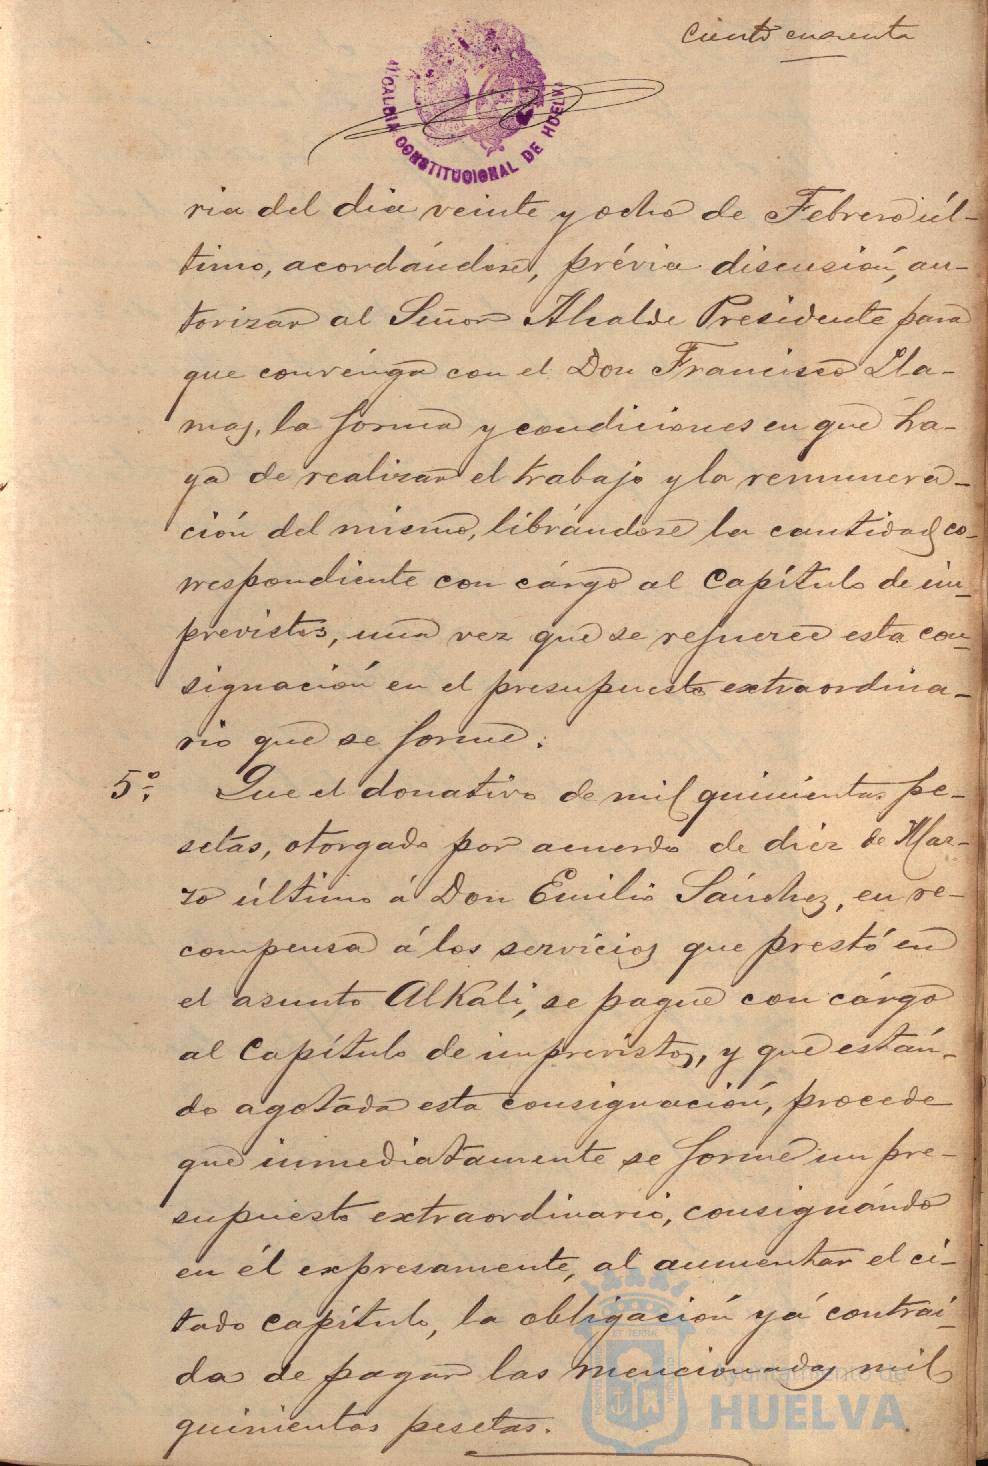 Ciento cuarenta
ALCALDIA CONSTITUCIONAL DE HUELVA
ria del dia veinte y ocho de Febrero úl-
timo, acordándose, prévia discusión, au-
torizar al Señor Alcalde Presidente para
que convénga con el Don Francisco Lla-
mas, la forma y condiciones en que ha-
ya de realizar el trabajo y la remunera-
ción del mismo, librándose la cantidad co-
rrespondiente con cárgo al Capítulo de im-
previstos, una vez que se refuerce esta con-
signación en el presupuesto extraordina-
rio que se forme.
5º. Que el donativo de mil quinientas pe-
setas, otorgado por acuerdo de diez de Mar-
zo último á Don Emilio Sánchez, en re-
compensa á los servicios que prestó en
el asunto Alkali, se pague con cárgo
al Capítulo de imprevistos, y que están-
do agotada esta consignación, procede
que inmediatamente se forme un pre-
supuesto extraordinario, consignándo
en él expresamente, al aumentar el ci-
tado capítulo, la obligación yá contraí-
da de pagar las mencionadas mil
quinientas pesetas.
Ayuntamiento de
HUELVA